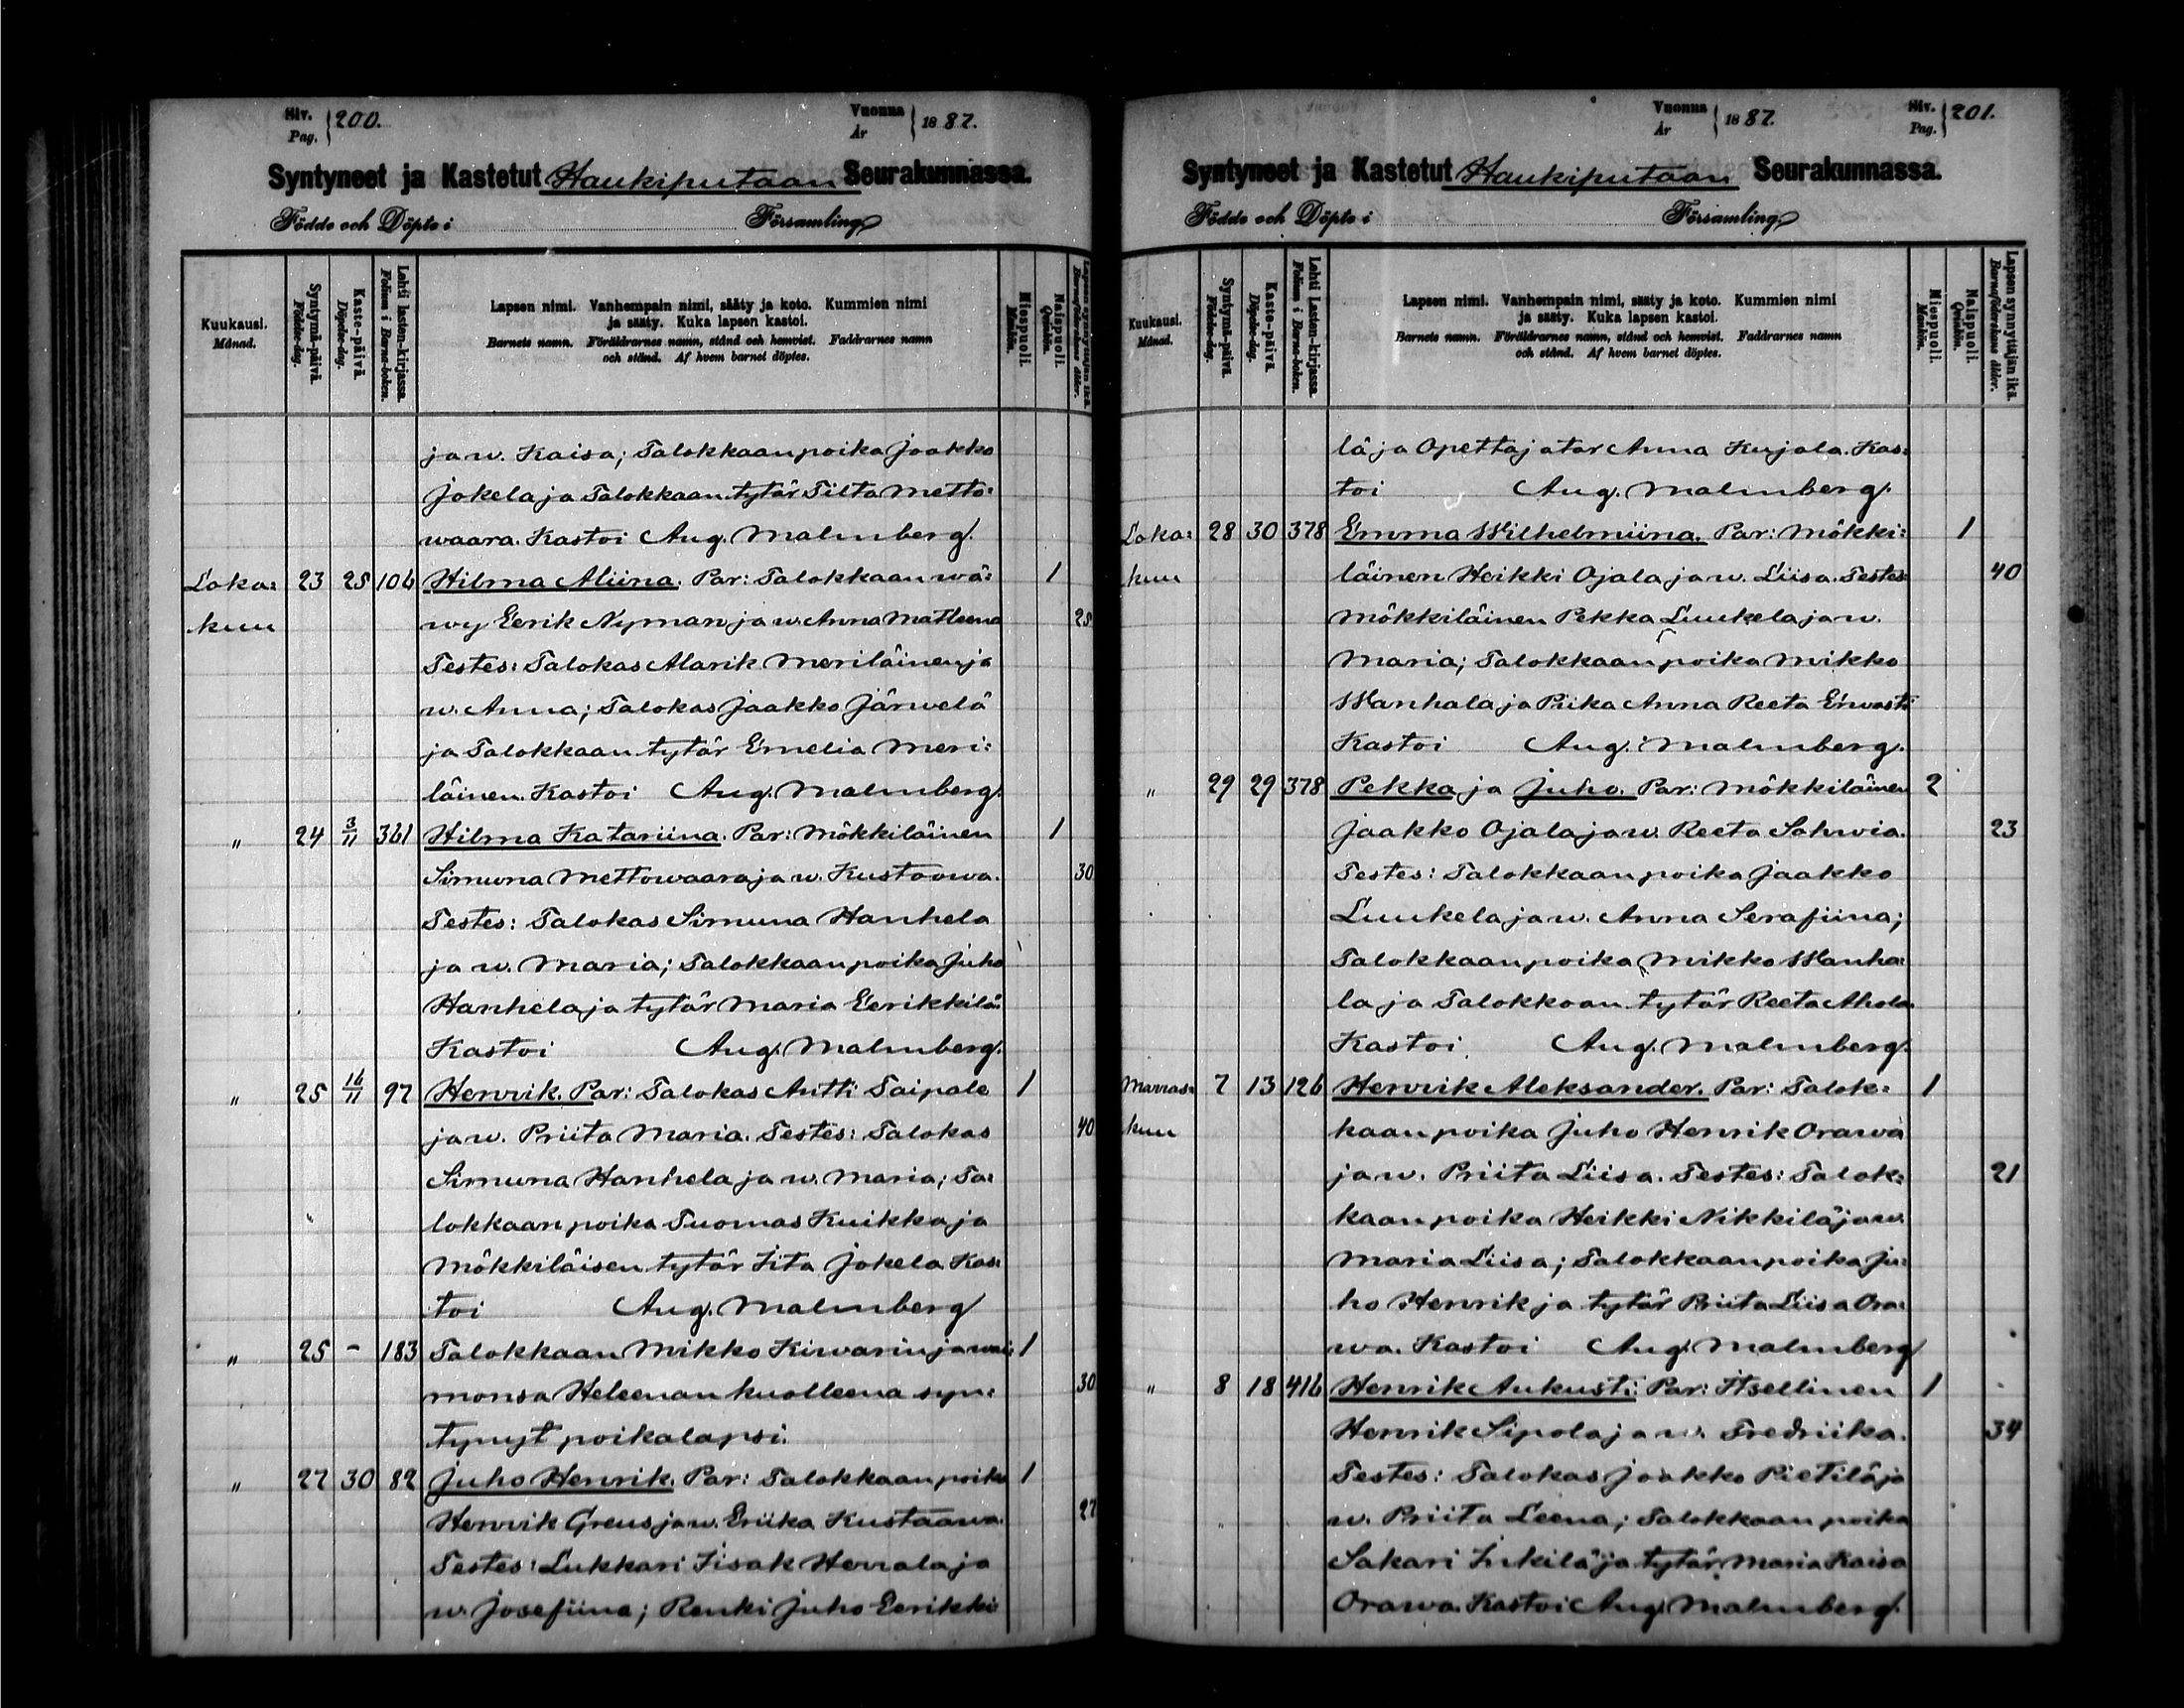 Siv. Pag. 200.
Vuonna År 1887.
Syntyneet ja Kastetut Haukiputaan Seurakunnassa.
Födde och Döpte i Församling
Kuukausi. Månad.
Syntymä-päivä. Födelse-dag.
Kaste-päivä. Döpelse-dag.
Lehti lasten-kirjassa. Folium i Barna-boken.
Lapsen nimi. Vanhempain nimi, sääty ja koto. Kummien nimi
ja sääty. Kuka lapsen kastoi.
Barnets namn. Föräldrarnes namn, stånd och hemvist. Faddrarnes namn
och stånd. Af hvem barnet döptes.
Miespuoli. Mankön.
Naispuoli. Qvinkön.
Lapsen synnyttäjän ikä. Barnaföderskans ålder.
ja w. Kaisa; Talokkaan poika Jaakko
Jokela ja Talokkaan tytär Tilta Metto:
waara. Kastoi Aug. Malmberg.
Loka: 23 25 106 Hilma Aliina. Par: Talokkaan wä: 1
kuu wy Eerik Nyman ja w. Anna Matleena 28
Testes: Talokas Alarik Meriläinen ja
w. Anna; Talokas Jaakko Järwelä
ja Talokkaan tytär Emelia Meri:
läinen. Kastoi Aug. Malmberg.
" 24 3/11 361 Hilma Katariina. Par: Mökkiläinen 1
Simuna Mettowaara ja w. Kustaawa. 30
Testes: Talokas Simuna Hanhela
ja w. Maria; Talokkaan poika Juho
Hanhela ja tytär Maria Eerikkilä.
Kastoi Aug. Malmberg.
" 25 16/11 97 Henrik. Par: Talokas Antti Taipale 1
ja w. Priita Maria. Testes: Talokas 40
Simuna Hanhela ja w. Maria; Ta:
lokkaan poika Tuomas Kuikka ja
Mökkiläisen tytär Iita Jokela Kas:
toi Aug. Malmberg
" 25 – 183 Talokkaan Mikko Kiwarin ja wai: 1
monsa Heleenan kuolleena syn: 30
tynyt poikalapsi.
" 27 30 82 Juho Henrik. Par: Talokkaan poika 1
Henrik Greus ja w. Eriika Kustaawa. 27
Testes: Lukkari Iisak Herrala ja
w. Josefiina; Renki Juho Eerikki
Vuonna År 1887.
Siv. Pag. 201.
Syntyneet ja Kastetut Haukiputaan Seurakunnassa.
Födde och Döpte i Församling
Kuukausi. Månad.
Syntymä-päivä. Födelse-dag.
Kaste-päivä. Döpelse-dag.
Lehti Lasten-kirjassa. Folium i Barna-boken.
Lapsen nimi. Vanhempain nimi, sääty ja koto. Kummien nimi
ja sääty. Kuka lapsen kastoi.
Barnets namn. Föräldrarnes namn, stånd och hemvist. Faddrarnes namn
och stånd. Af hvem barnet döptes.
Miespuoli. Mankön.
Naispuoli. Qvinkön.
Lapsen synnyttäjän ikä. Barnaföderskans ålder.
lä ja Opettajatar Anna Kujala. Kas:
toi Aug. Malmberg.
Loka: 28 30 378 Emma Wilhelmiina. Par: Mökki: 1
kuu läinen Heikki Ojala ja w. Liisa. Testes: 40
Mökkiläinen Pekka Luukela ja w.
Maria; Talokkaan poika Mikko
Wanhala ja Piika Anna Reeta Erwasti
Kastoi Aug. Malmberg.
" 29 29 378 Pekka ja Juho. Par: Mökkiläinen 2
Jaakko Ojala ja w. Reeta Sahwia. 23
Testes: Talokkaan poika Jaakko
Luukela ja w. Anna Serafiina;
Talokkaan poika Mikko Wanha:
la ja Talokkaan tytär Reeta Ahola.
Kastoi Aug. Malmberg.
Marras: 7 13 126 Henrik Aleksander. Par: Talok: 1
kuu kaan poika Juho Henrik Orawa
ja w. Priita Liisa. Testes: Talok: 21
kaan poika Heikki Nikkilä ja w.
Maria Liisa; Talokkaan poika Ju:
ho Henrik ja tytär Priita Liisa Ora:
wa. Kastoi Aug. Malmberg
" 8 18 416 Henrik Aukusti. Par: Itsellinen 1
Henrik Sipola ja w. Fredriika. 34
Testes: Talokas Jaakko Pietilä ja
w. Priita Leena; Talokkaan poika
Sakari Inkilä ja tytär Maria Kaisa
Orawa. Kastoi Aug. Malmberg.